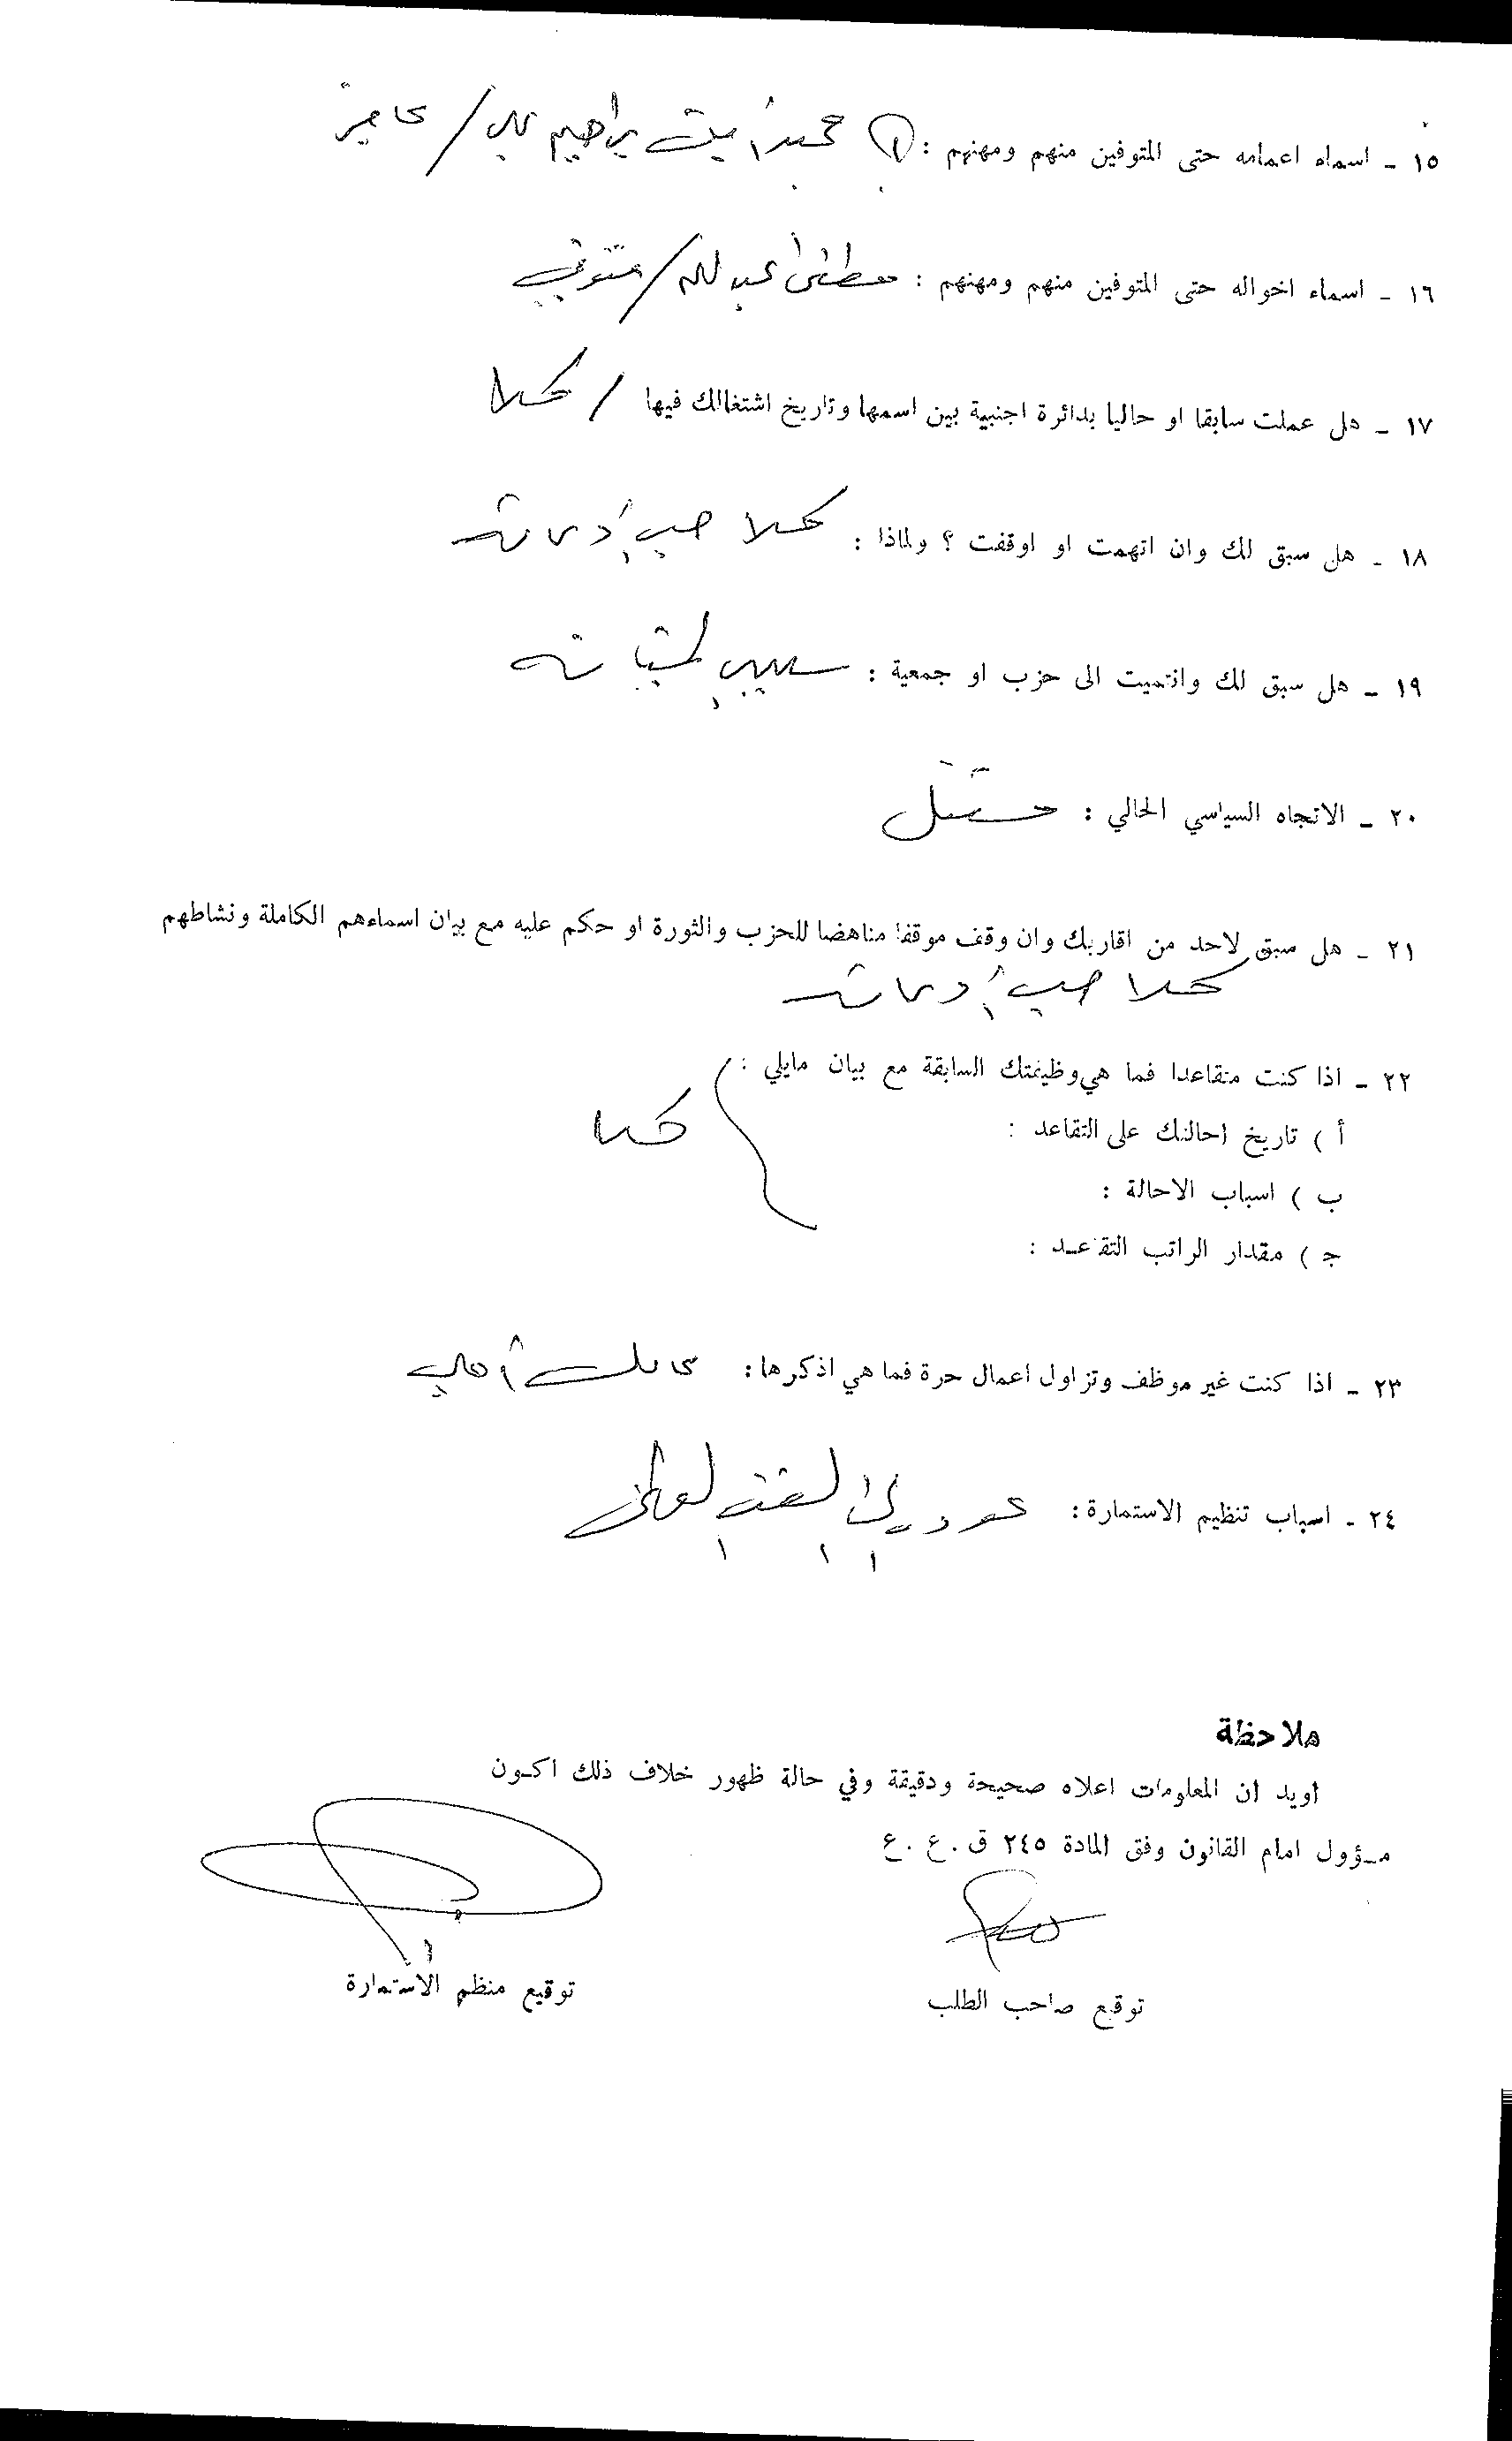 ١٥ ـ اسماء اعمامه حتى المتوفين منهم ومهنهم : ① محمد أمين ابراهيم علي /
١٦ ـ اسماء اخواله حتى المتوفين منهم ومهنهم : مصطفى عبدالله / متوفي
١٧ ـ هل عملت سابقا او حاليا بدائرة اجنبية بين اسمها وتاريخ اشتغالك فيها / كلا
١٨ ـ هل سبق لك وان اتهمت او اوقفت ؟ ولماذا : كلا حسب إدعائه
١٩ ـ هل سبق لك وانتميت الى حزب او جمعية :
٢٠ ـ الاتجاه السياسي الحالي : مستقل
٢١ ـ هل سبق لاحد من اقاربك وان وقف موقفا مناهضا للحزب والثورة او حكم عليه مع بيان اسماءهم الكاملة ونشاطهم
كلا حسب إدعائه
٢٢ ـ اذا كنت متقاعدا فما هي وظيفتك السابقة مع بيان مايلي :
أ ) تاريخ احالتك على التقاعد : كلا
ب ) اسباب الاحالة :
ج ) مقدار الراتب التقاعد :
٢٣ ـ اذا كنت غير موظف وتزاول اعمال حرة فما هي اذكرها :
٢٤ ـ اسباب تنظيم الاستمارة : الى الصف الوطني
ملاحظة
اويد ان المعلومات اعلاه صحيحة ودقيقة وفي حالة ظهور خلاف ذلك اكـون
مـؤول امام القانون وفق المادة ٢٤٥ ق . ع . ع
توقيع صاحب الطلب
توقيع منظم الاستمارة